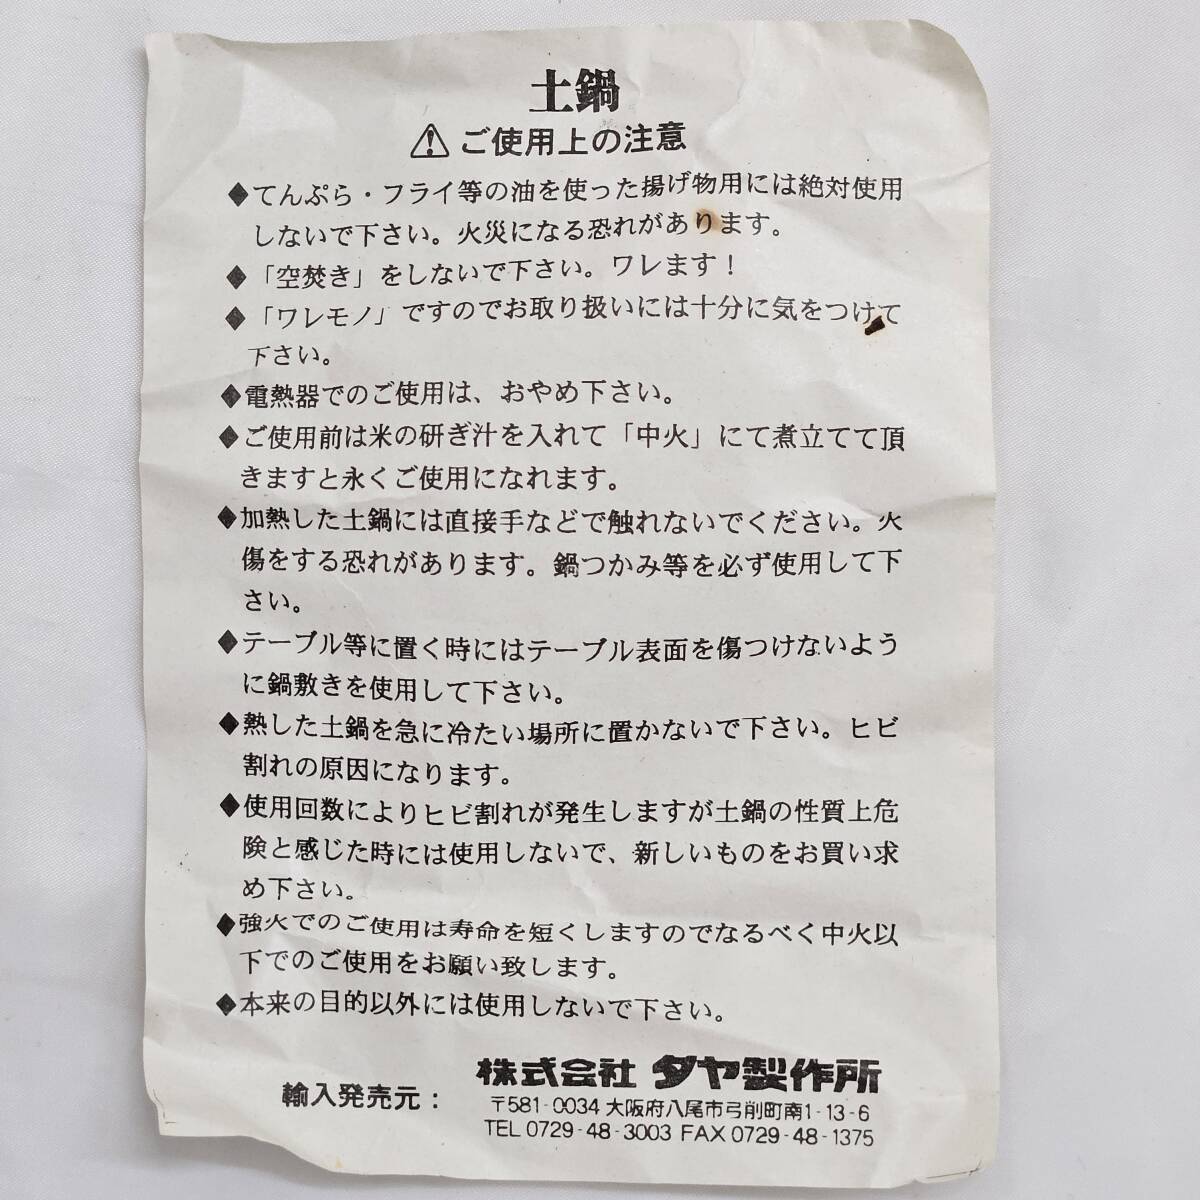 土鍋
⚠ご使用上の注意
◆てんぷら・フライ等の油を使った揚げ物用には絶対使用
しないで下さい。火災になる恐れがあります。
◆「空焚き」をしないで下さい。ワレます！
◆「ワレモノ」ですのでお取り扱いには十分に気をつけて
下さい。
◆電熱器でのご使用は、おやめ下さい。
◆ご使用前は米の研ぎ汁を入れて「中火」にて煮立てて頂
きますと永くご使用になれます。
◆加熱した土鍋には直接手などで触れないでください。火
傷をする恐れがあります。鍋つかみ等を必ず使用して下
さい。
◆テーブル等に置く時にはテーブル表面を傷つけないよう
に鍋敷きを使用して下さい。
◆熱した土鍋を急に冷たい場所に置かないで下さい。ヒビ
割れの原因になります。
◆使用回数によりヒビ割れが発生しますが土鍋の性質上危
険と感じた時には使用しないで、新しいものをお買い求
め下さい。
◆強火でのご使用は寿命を短くしますのでなるべく中火以
下でのご使用をお願い致します。
◆本来の目的以外には使用しないで下さい。
輸入発売元：
株式会社 ダヤ製作所
〒581-0034 大阪府八尾市弓削町南1-13-6
TEL 0729-48-3003 FAX 0729-48-1375